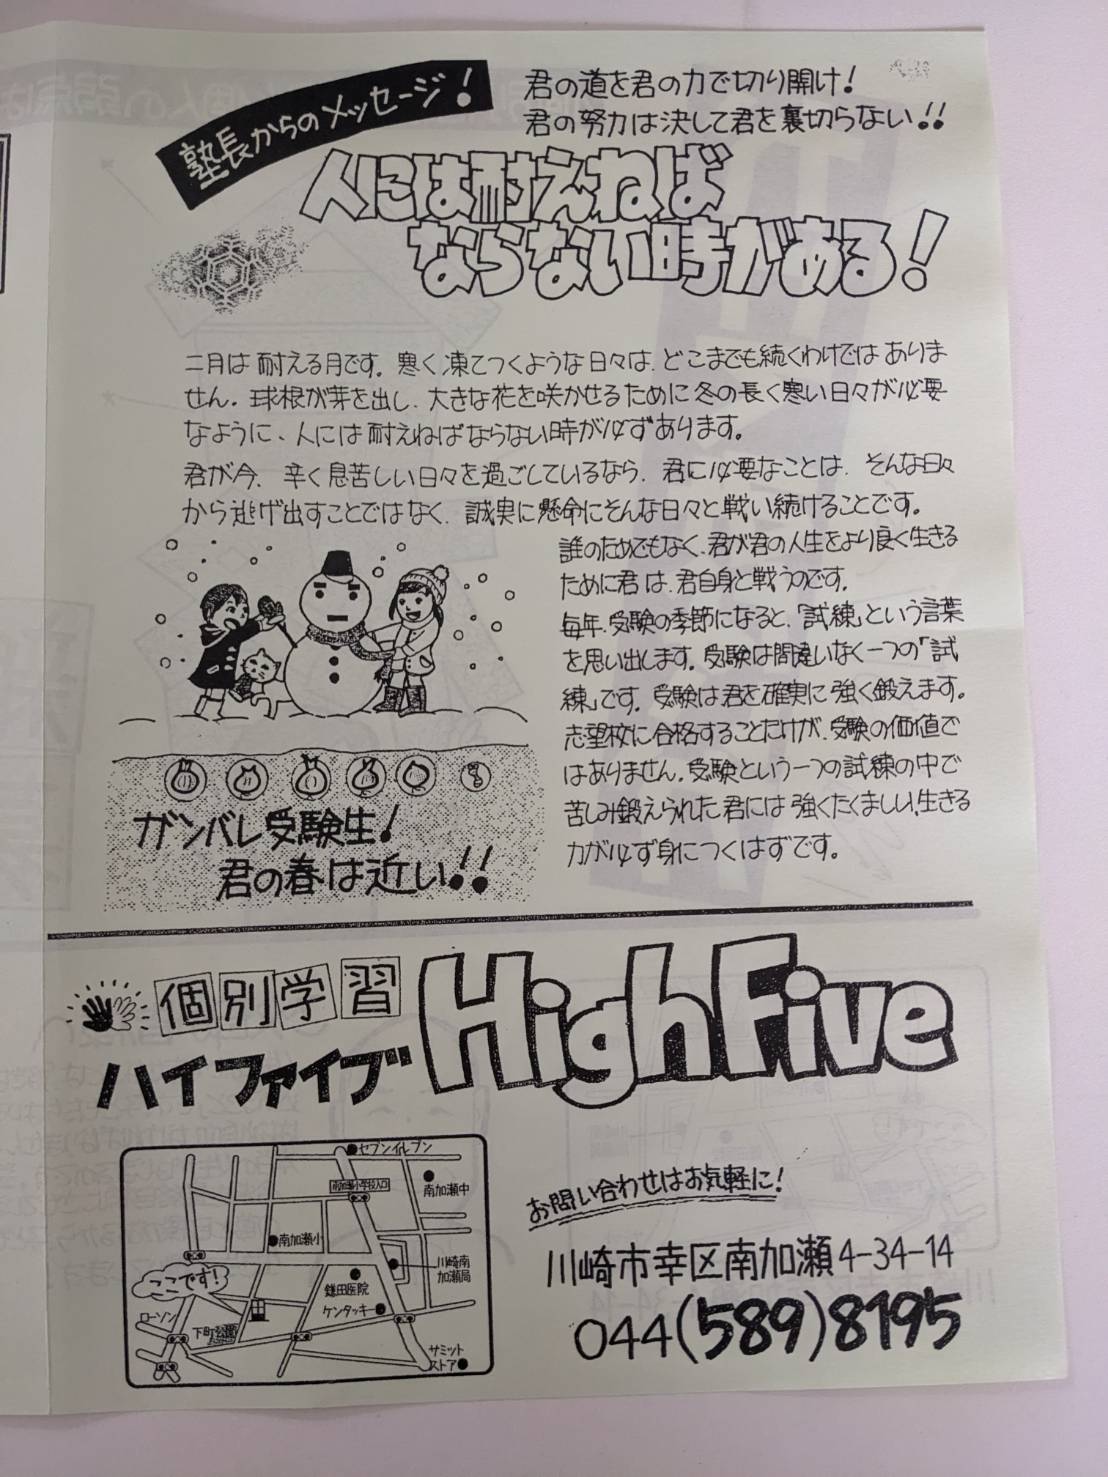 塾長からのメッセージ!
君の道を君の力で切り開け!
君の努力は決して君を裏切らない!!
人には耐えねば
ならない時がある!
二月は耐える月です。寒く凍てつくような日々は、どこまでも続くわけではありま
せん。球根が芽を出し、大きな花を咲かせるために冬の長く寒い日々が必要
なように、人には耐えねばならない時が必ずあります。
君が今、辛く息苦しい日々を過ごしているなら、君に必要なことは、そんな日々
から逃げ出すことではなく、誠実に懸命にそんな日々と戦い続けることです。
誰のためでもなく、君が君の人生をより良く生きる
ために君は、君自身と戦うのです。
毎年、受験の季節になると、「試練」という言葉
を思い出します。受験は間違いなく一つの「試
練」です。受験は君を確実に強く鍛えます。
志望校に合格することだけが、受験の価値で
はありません。受験という一つの試練の中で
苦しみ鍛えられた君には強くたくましい、生きる
力が必ず身につくはずです。
ガンバレ受験生!
君の春は近い!!
個別学習
ハイファイブ
HighFive
セブンイレブン
南加瀬小学校入口
南加瀬中
南加瀬小
川崎南
加瀬局
ここです!
鎌田医院
ローソン
ケンタッキー
下町公園
サミット
ストア
お問い合わせはお気軽に!
川崎市幸区南加瀬4-34-14
044(589)8195